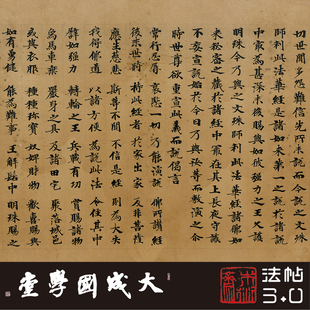 切世間多怨難信先所未說而今說之文殊
師利此法華經是諸如來第一之說於諸說
中最為甚深末後賜與如彼强力之王久護
明珠今乃與之文殊師利此法華經諸佛如
來秘密之藏於諸經中最在其上長夜守護
不妄宣說始於今日乃與汝等而敷演之爾
時世尊欲重宣此義而說偈言
常行忍辱 哀愍一切 乃能演說 佛所讚經
後末世時 持此經者 於家出家 及非菩薩
應生慈悲 斯等不聞 不信是經 則為大失
我得佛道 以諸方便 為說此法 令住其中
譬如强力 轉輪之王 兵戰有功 賞賜諸物
象馬車乘 嚴身之具 及諸田宅 聚落城邑
或與衣服 種種珍寶 奴婢財物 歡喜賜與
如有勇健 能為難事 王解髻中 明珠賜之
大成國學堂
法帖
3.0